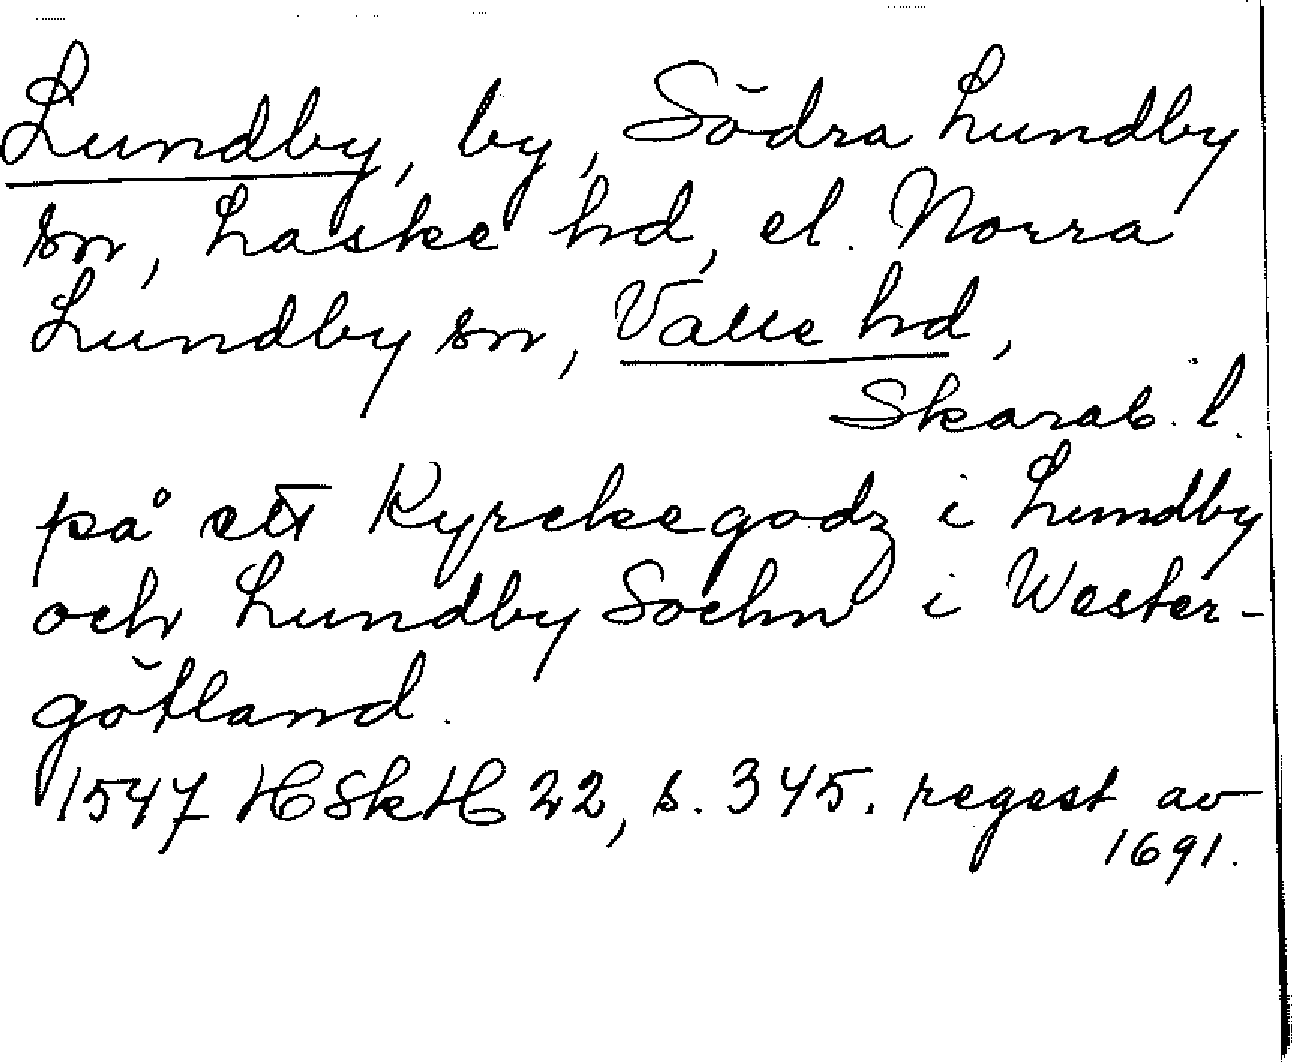 Lundby, by, Södra Lundby
sn, Laske hd, el. Norra
Lundby sn, Valle hd,
Skarab. l.
på ett Kyrckegodz i Lundby
och Lundby Sochn i Wester-
götland.
1547 HSkH 22, s. 345. regest av
1691.